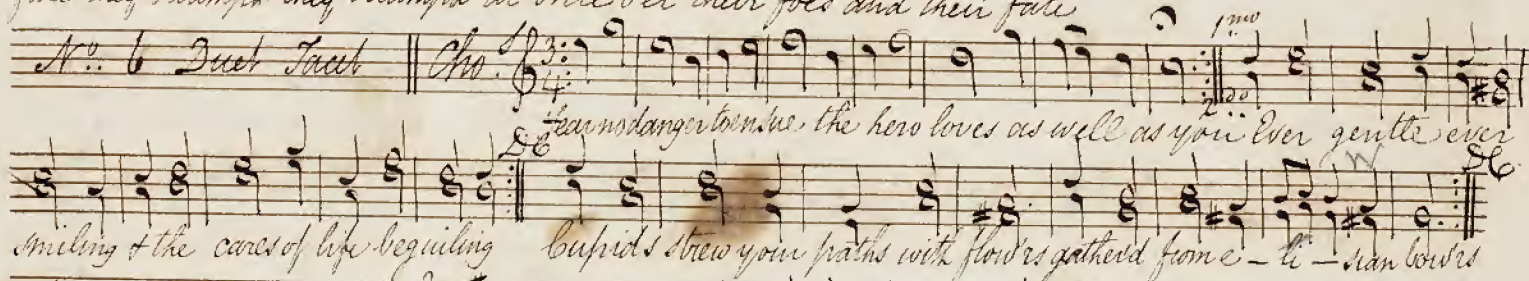 they triumph they triumph at once o'er their foes and their fate
No. 6 Duet Tacet Cho. 3: 4: 1mo
2do
fear no danger to ensue. the hero loves as well as you Ever gentle ever
DC DC
smiling & the cares of life beguiling Cupids strew your paths with flow'rs gather'd from e-li-sian bow'rs